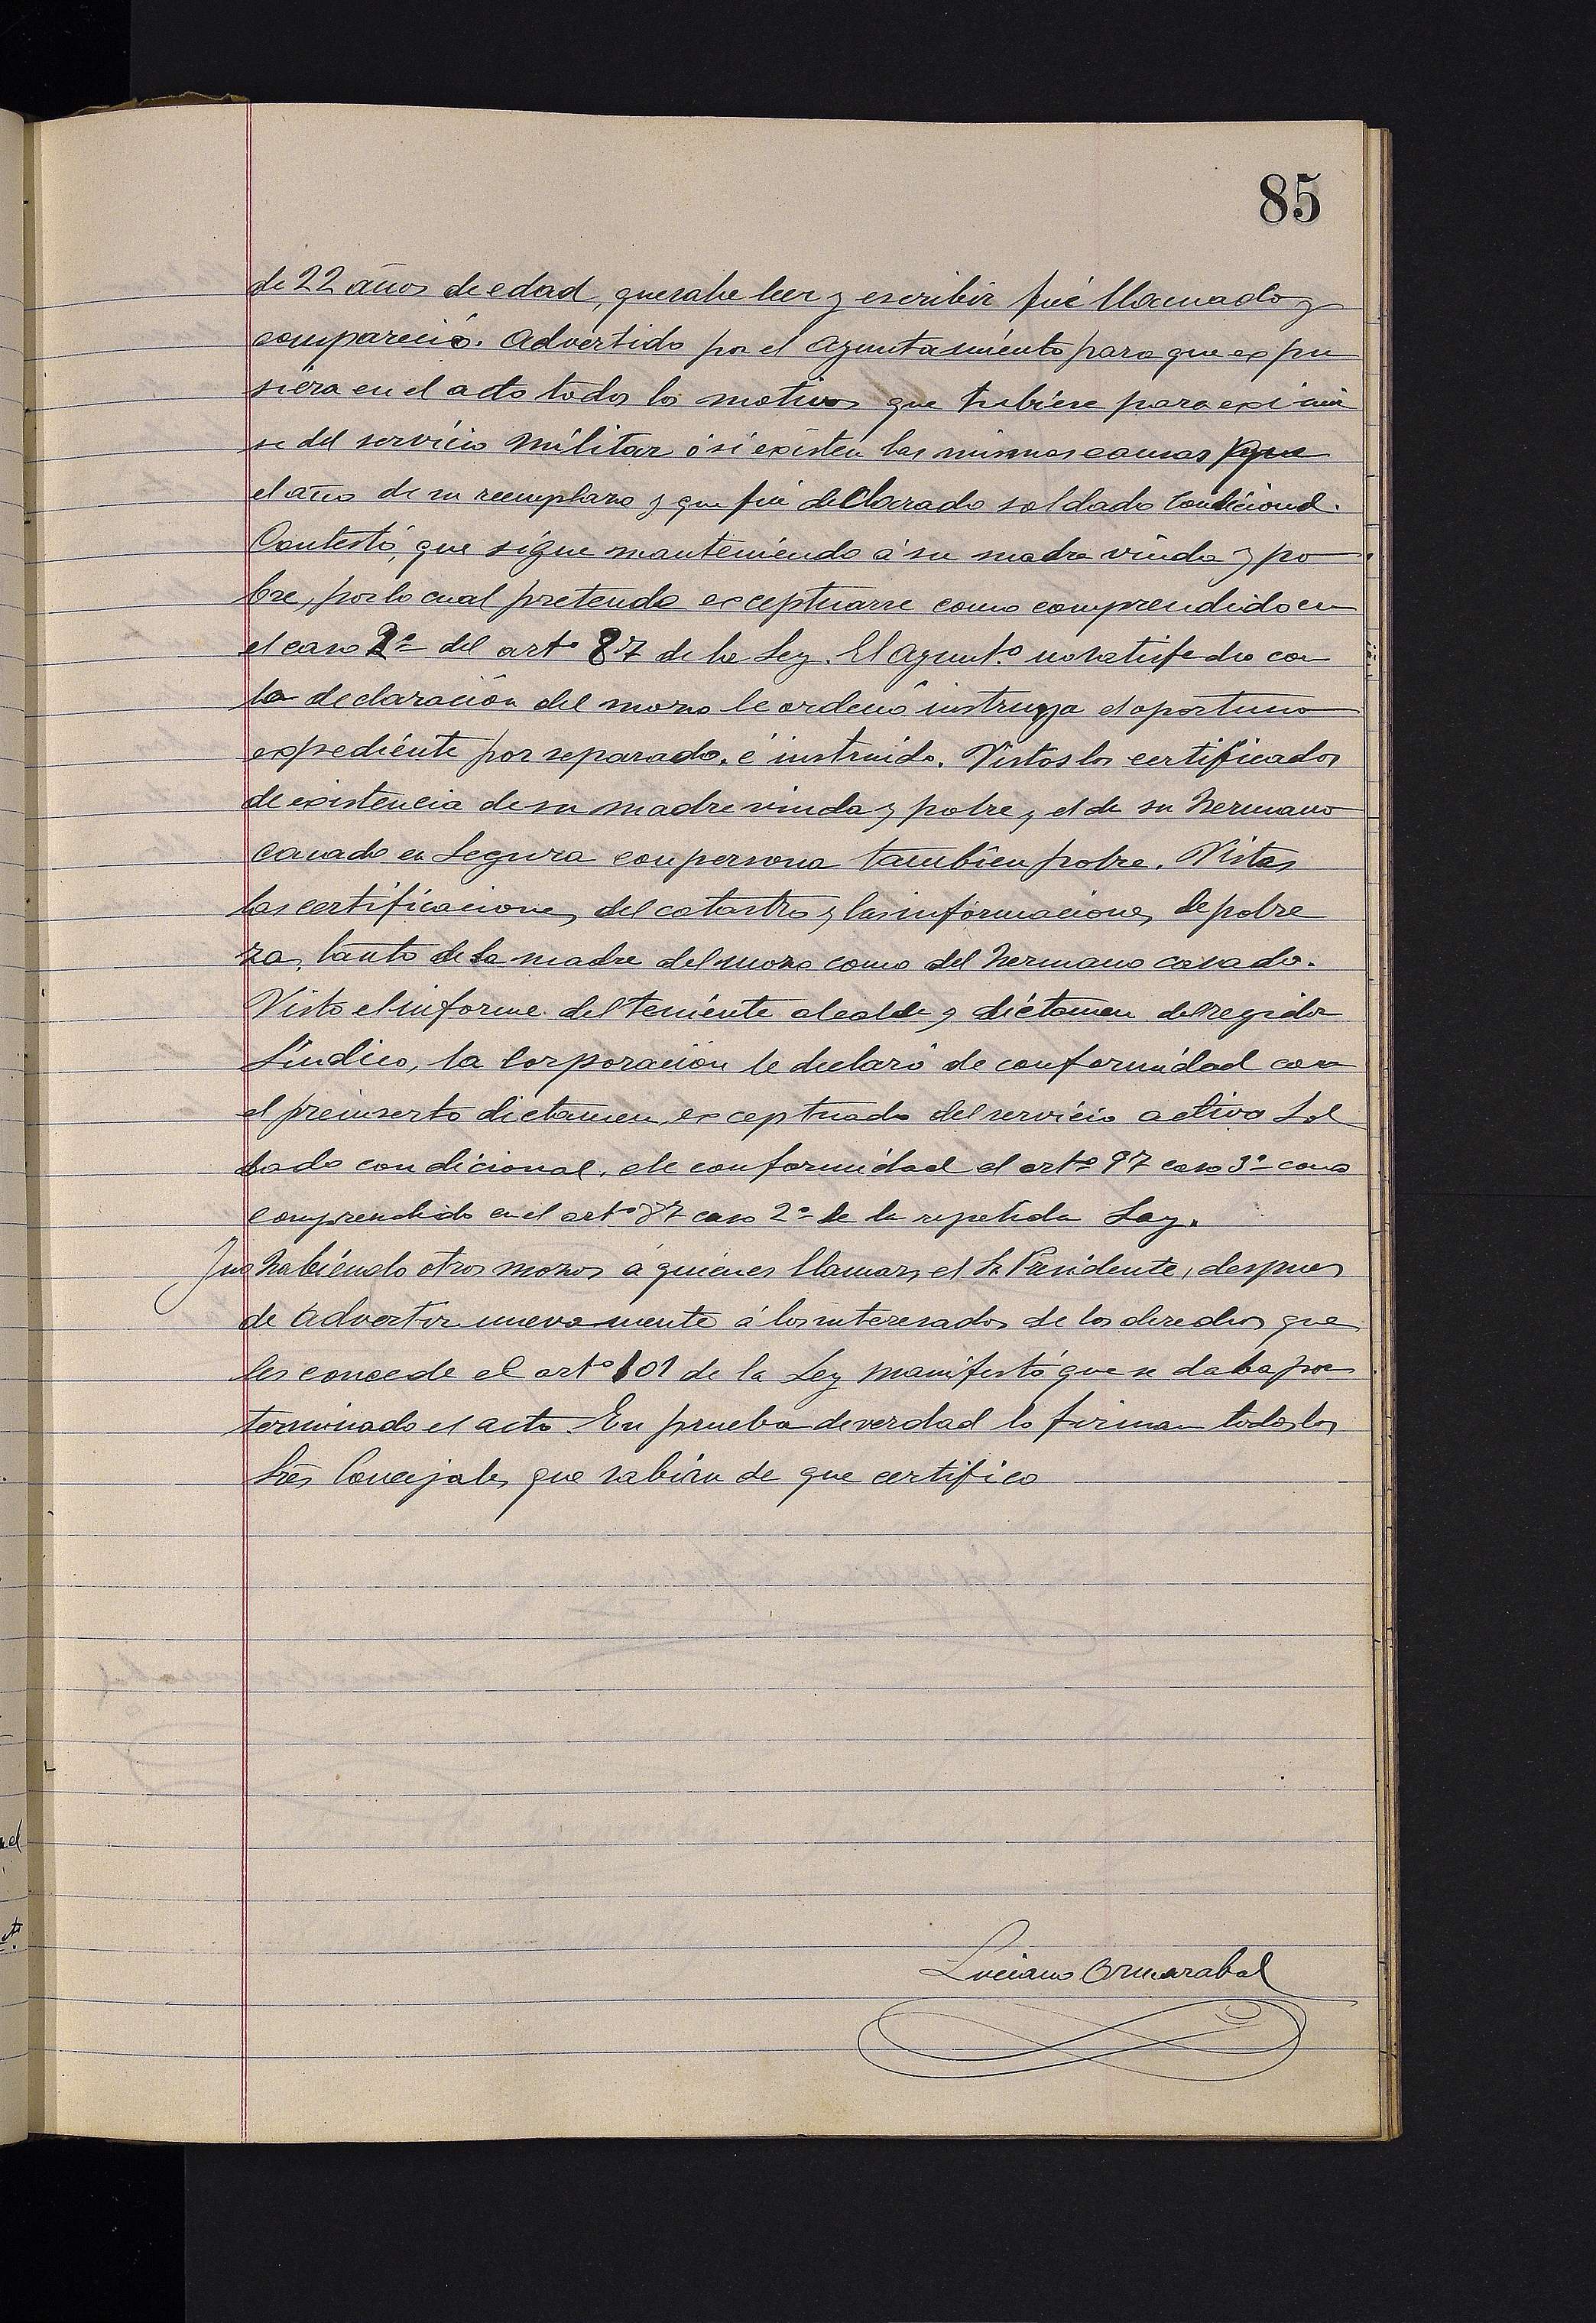 85
de 22 años de edad, que sabe leer y escribir fué llamado y
compareció. Advertido por el Ayuntamiento para que expu
siera en el acto todos los motivos que tubiese para eximir
se del servicio militar ó si existen las mismas causas que
el año de su reemplazo y que fué declarado soldado condicional.
Contestó, que sigue manteniendo á su madre viuda y po
bre, por lo cual pretende exceptuarse como comprendido en
el caso 2º del artº 87 de la Ley. El Ayuntº no satisfecho con
la declaración del mozo le ordenó instruya el oportuno
expediente por separado, é instruido. Vistos los certificados
de existencia de su madre viuda y pobre, el de su hermano
casado en Segura con persona tambien pobre. Vistas
las certificaciones del catastro y las informaciones de pobre
za, tanto de la madre del mozo como del hermano casado.
Visto el informe del teniente alcalde y dictamen del regidor
Síndico, la Corporación le declaró de conformidad con
el preinserto dictamen, exceptuado del servicio activo Sol
dado condicional, de conformidad el artº 97 caso 3º como
comprendido en el artº 87 caso 2º de la repetida Ley.
Y no habiendo otros mozos á quienes llamar, el Sr Presidente, despues
de advertir nuevamente á los interesados de los derechos que
les concede el artº 101 de la Ley manifestó que se daba por
terminado el acto. En prueba de verdad lo firman todos los
Sres Concejales que sabian de que certifico
Luciano Ormazabal